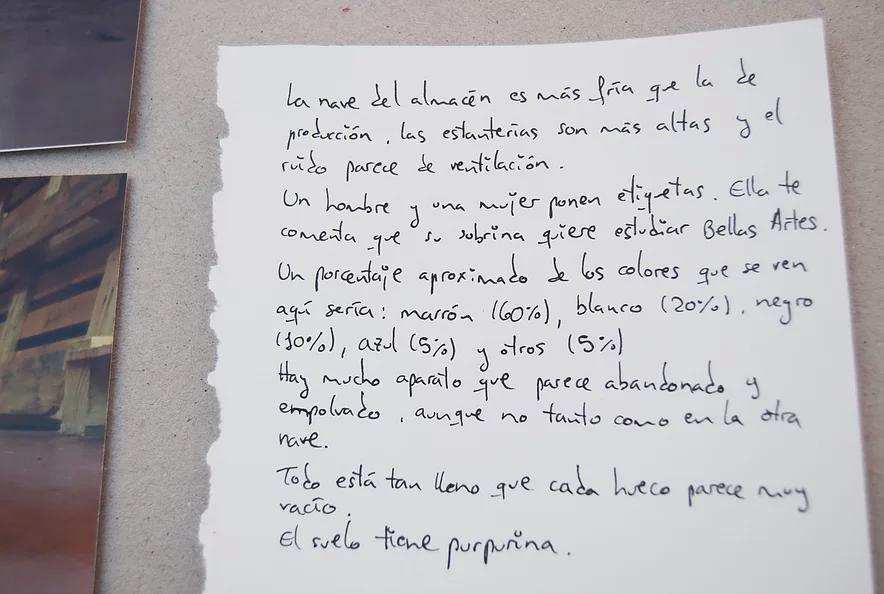 La nave del almacén es más fría que la de
producción, las estanterías son más altas y el
ruido parece de ventilación.
Un hombre y una mujer ponen etiquetas. Ella te
comenta que su sobrina quiere estudiar Bellas Artes.
Un porcentaje aproximado de los colores que se ven
aquí sería: marrón (60%), blanco (20%), negro
(10%), azul (5%) y otros (5%)
Hay mucho aparato que parece abandonado y
empolvado, aunque no tanto como en la otra
nave.
Todo está tan lleno que cada hueco parece muy
vacío.
El suelo tiene purpurina.